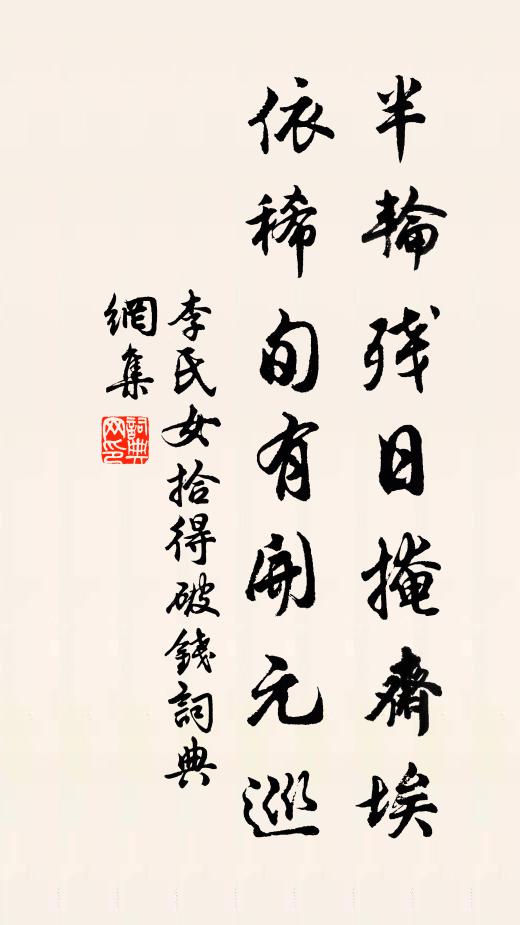 半輪残日掩齋埃
依稀旬有開元巡
李氏女拾得破錢詞典
網集
詞典
网印